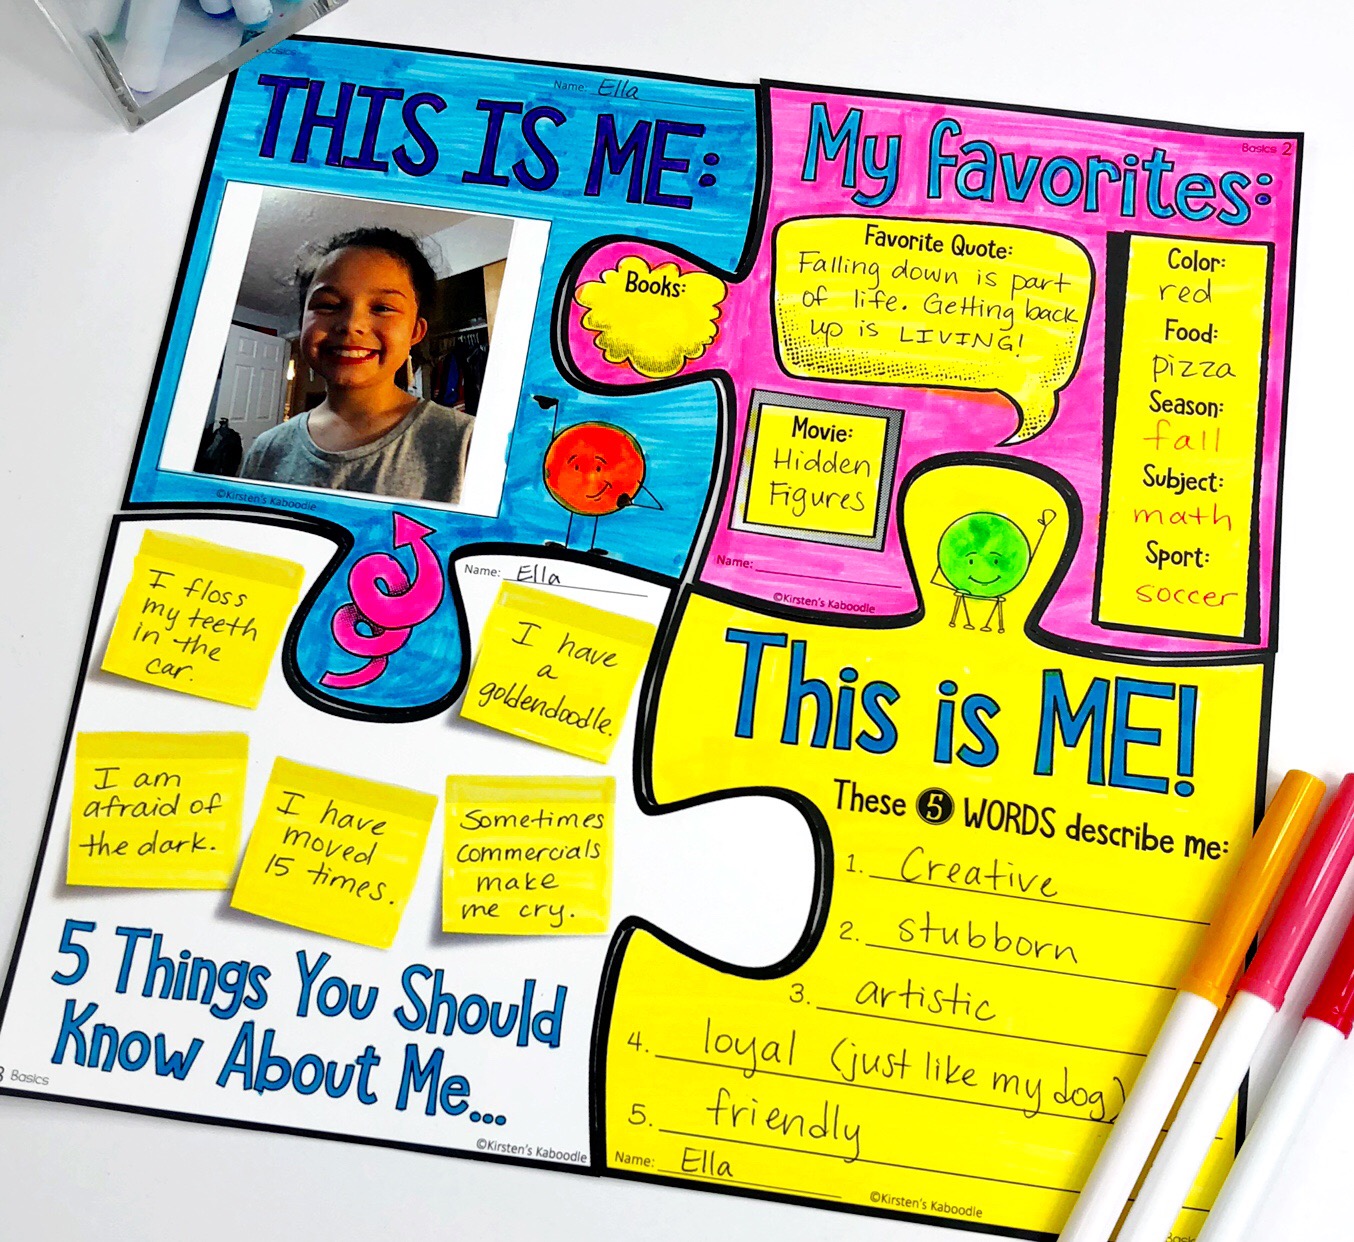 Basics
Name: Ella
THIS IS ME:
©Kirsten's Kaboodle
Basics 2
My favorites:
Books:
Favorite Quote:
Falling down is part
of life. Getting back
up is LIVING!
Movie:
Hidden
Figures
Color:
red
Food:
pizza
Season:
fall
Subject:
math
Sport:
soccer
Name:
©Kirsten's Kaboodle
Name: Ella
I floss
my teeth
in the
car.
I have
a
goldendoodle.
I am
afraid of
the dark.
I have
moved
15 times.
Sometimes
commercials
make
me cry.
5 Things You Should
Know About Me...
3 Basics
©Kirsten's Kaboodle
This is ME!
These 5 WORDS describe me:
1. Creative
2. stubborn
3. artistic
4. loyal (just like my dog)
5. friendly
Name: Ella
©Kirsten's Kaboodle